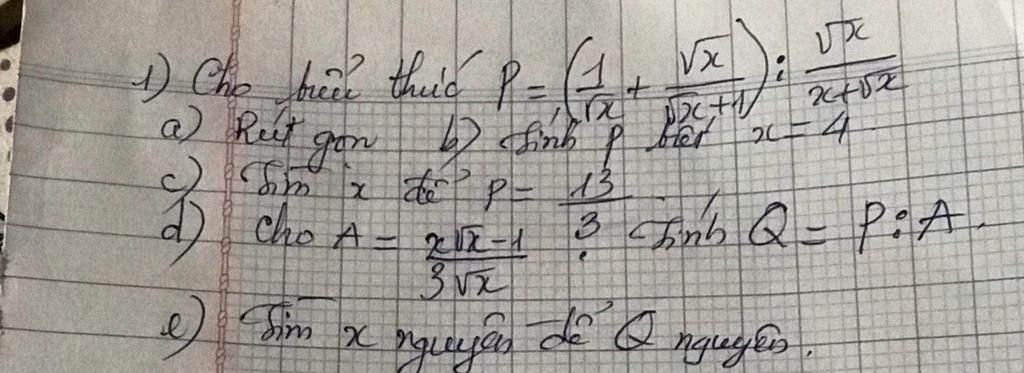 1) Cho biểu thức P = (1/√x + √x/(√x+1)) : √x/(x+√x)
a) Rút gọn b) Tính P biết x = 4
c) Tìm x để P = 13/3
d) Cho A = (x√x-1)/(3√x) . Tính Q = P : A.
e) Tìm x nguyên để Q nguyên.